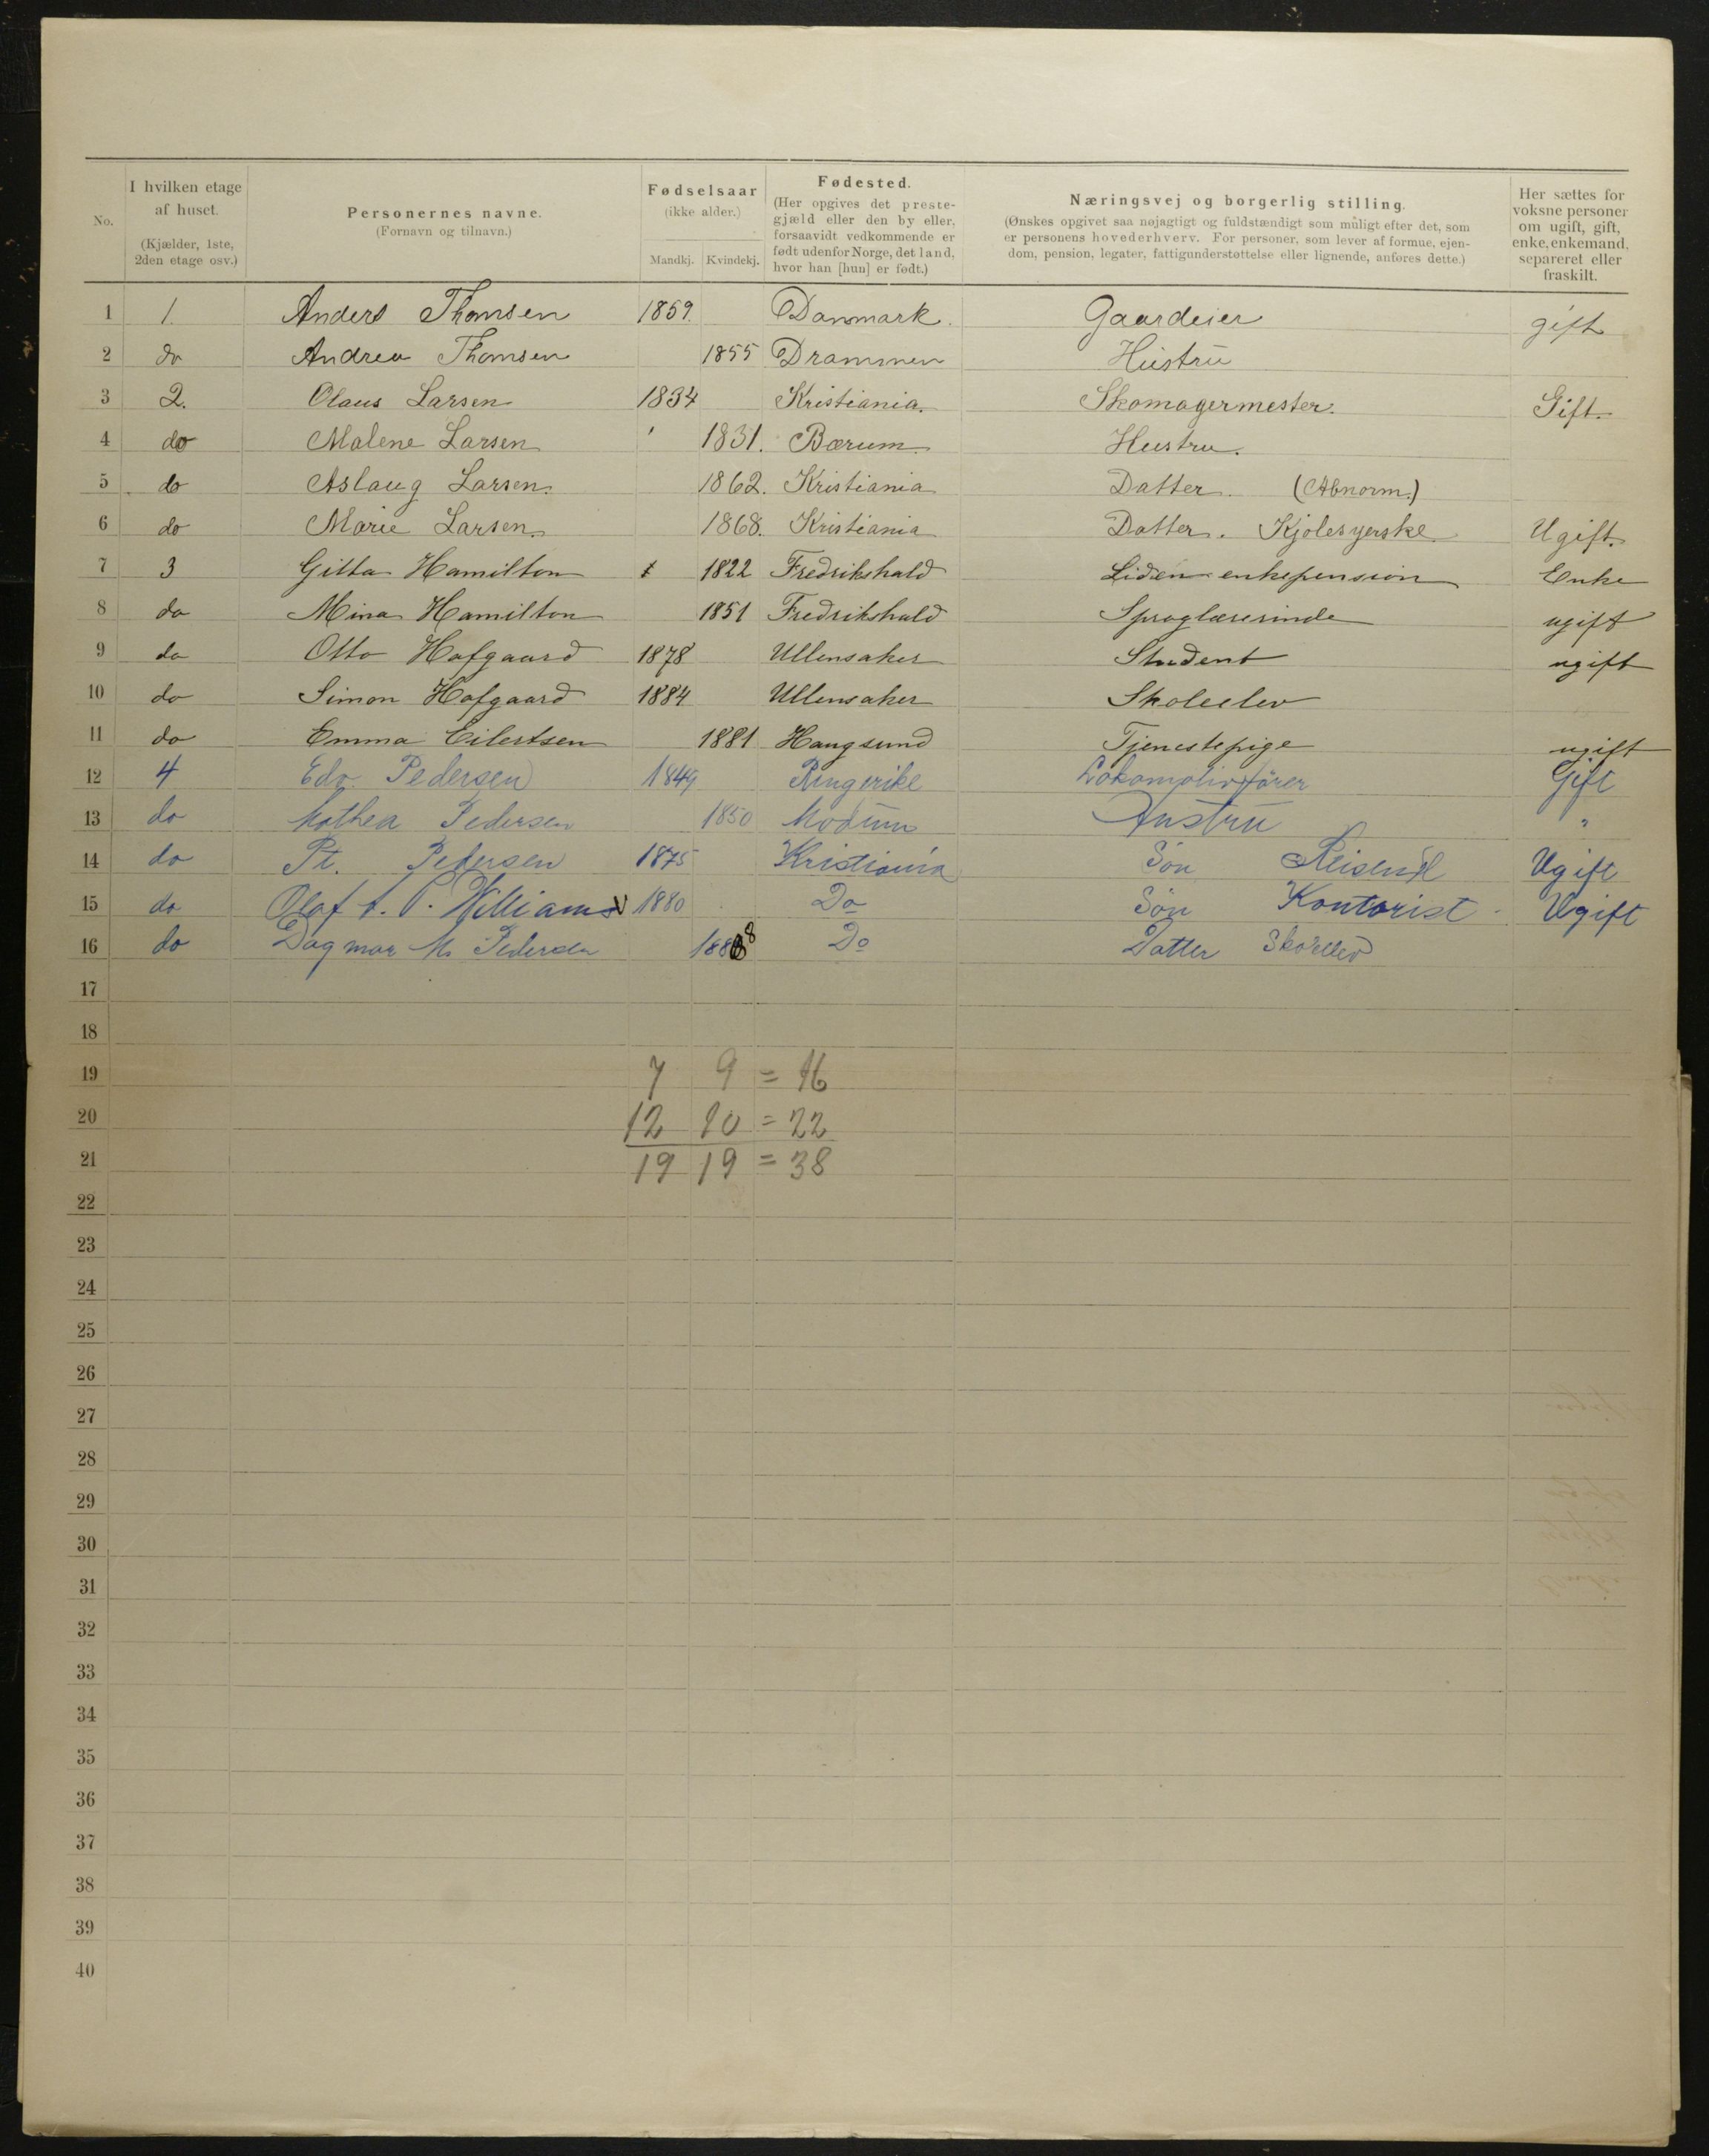 No.
I hvilken etage af huset. (Kjælder, 1ste, 2den etage osv.)
Personernes navne. (Fornavn og tilnavn.)
Fødselsaar (ikke alder.) Mandkj. Kvindekj.
Fødested. (Her opgives det prestegjæld eller den by eller, forsaavidt vedkommende er født udenfor Norge, det land, hvor han [hun] er født.)
Næringsvej og borgerlig stilling.
(Ønskes opgivet saa nøjagtigt og fuldstændigt som muligt efter det, som
er personens hovederhverv. For personer, som lever af formue, ejen-
dom, pension, legater, fattigunderstøttelse eller lignende, anføres dette.)
Her sættes for voksne personer om ugift, gift, enke, enkemand, separeret eller fraskilt.
1 1. Anders Thomsen 1859. Danmark. Gaardeier gift
2 do Andrea Thomsen 1855 Drammen Hustru
3 2. Olaus Larsen 1834 Kristiania. Skomagermester. Gift.
4 do Malene Larsen 1831. Bærum. Hustru.
5 do Aslaug Larsen. 1862. Kristiania Datter. (Abnorm.)
6 do Marie Larsen. 1868. Kristiania Datter. Kjolesyerske Ugift.
7 3 Gitta Hamilton 1822 Fredrikshald Liden enkepension Enke
8 do Mina Hamilton 1851 Fredrikshald Sproglærerinde ugift
9 do Otto Hofgaard 1878 Ullensaker Student ugift
10 do Simon Hofgaard 1884 Ullensaker Skoleelev
11 do Emma Eilertsen 1881 Haugsund Tjenestepige ugift
12 4 Edv. Pedersen 1849 Ringerike Lokomotivfører Gift
13 do Mathea Pedersen 1850 Modum Hustru "
14 do Pt. Pedersen 1875 Kristiania Søn Reisend Ugift
15 do Olaf P. William 1880 Do Søn Kontorist Ugift
16 do Dagmar M. Pedersen 1888 Do Datter Skoleelev
17
18
19 7 9 = 16
20 12 10 = 22
21 19 19 = 38
22
23
24
25
26
27
28
29
30
31
32
33
34
35
36
37
38
39
40